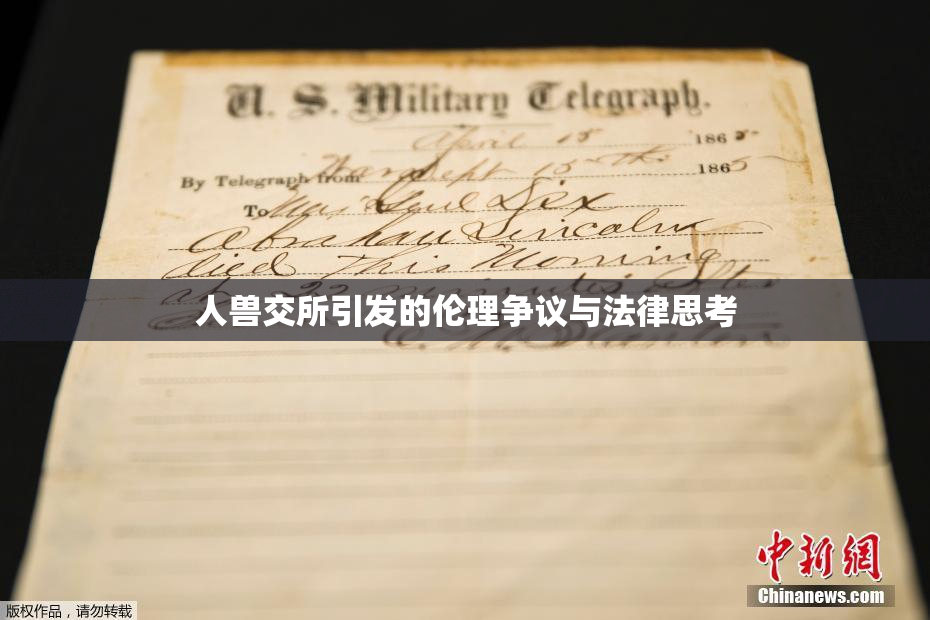 U. S. Military Telegraph.
April 15 1865
By Telegraph from War Dept 15th 1865
To Maj Genl Dix
Abraham Lincoln
died This Morning
at 22 minutes after
人兽交所引发的伦理争议与法律思考
中新網
Chinanews.com
版权作品，请勿转载